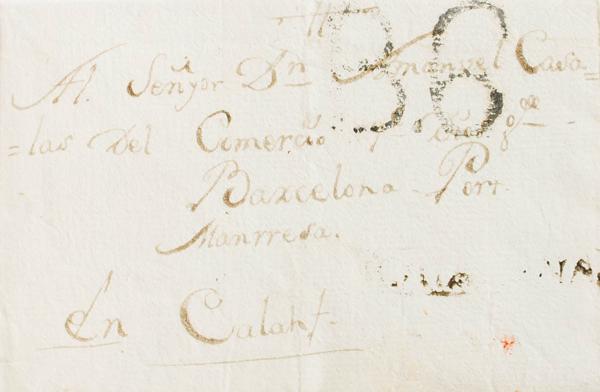 B8
Al. Señyor Dn Manvel Casa=
=las Del Comercio
Barcelona Port
Manrresa.
En Calahf.